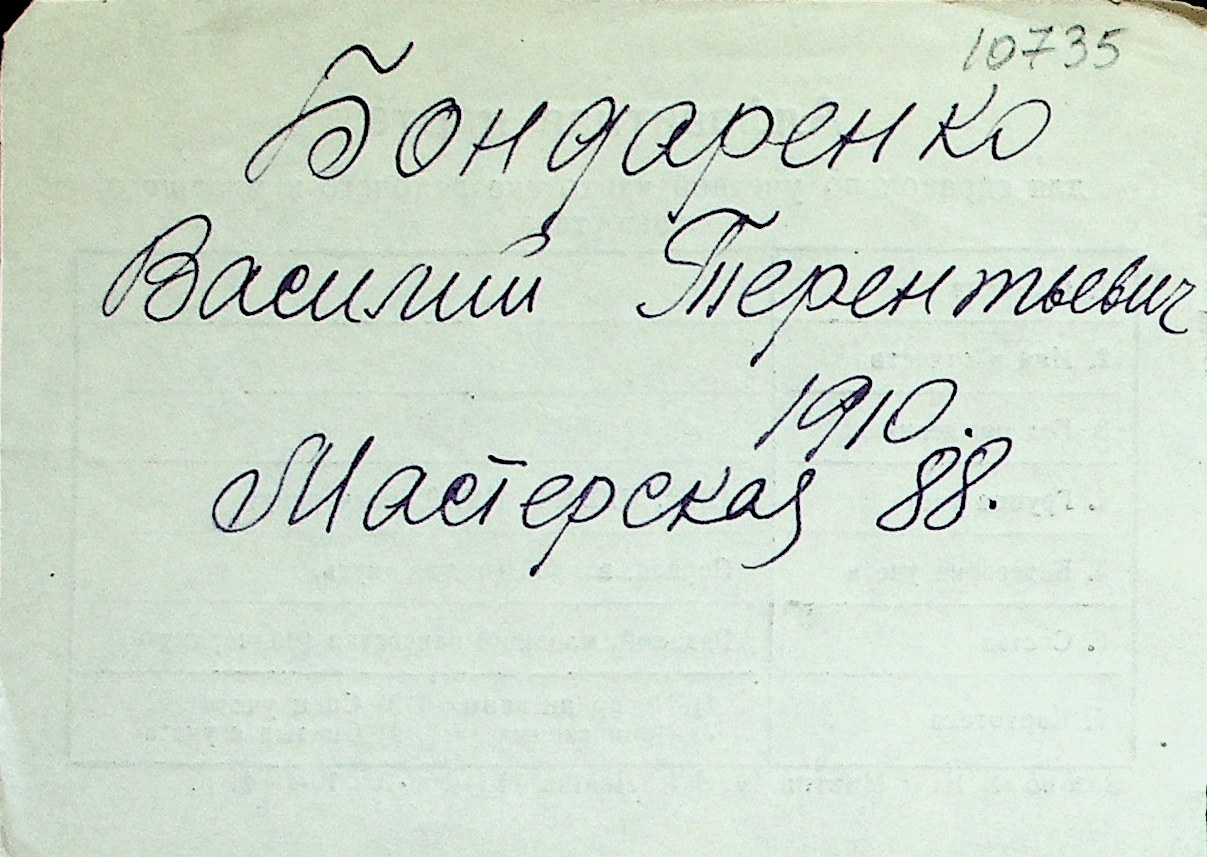 10735
Бондаренко
Василий Терентьевич
1910.
Мастерская 88.